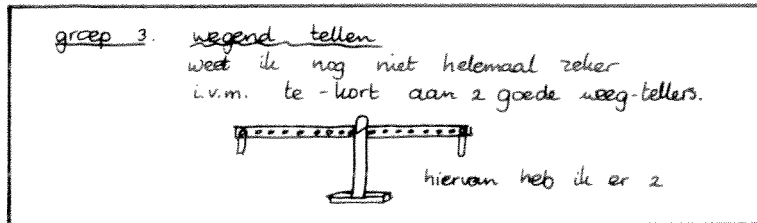 groep 3. wegend tellen
weet ik nog niet helemaal zeker
i.v.m. te-kort aan 2 goede weeg-tellers.
hiervan heb ik er 2